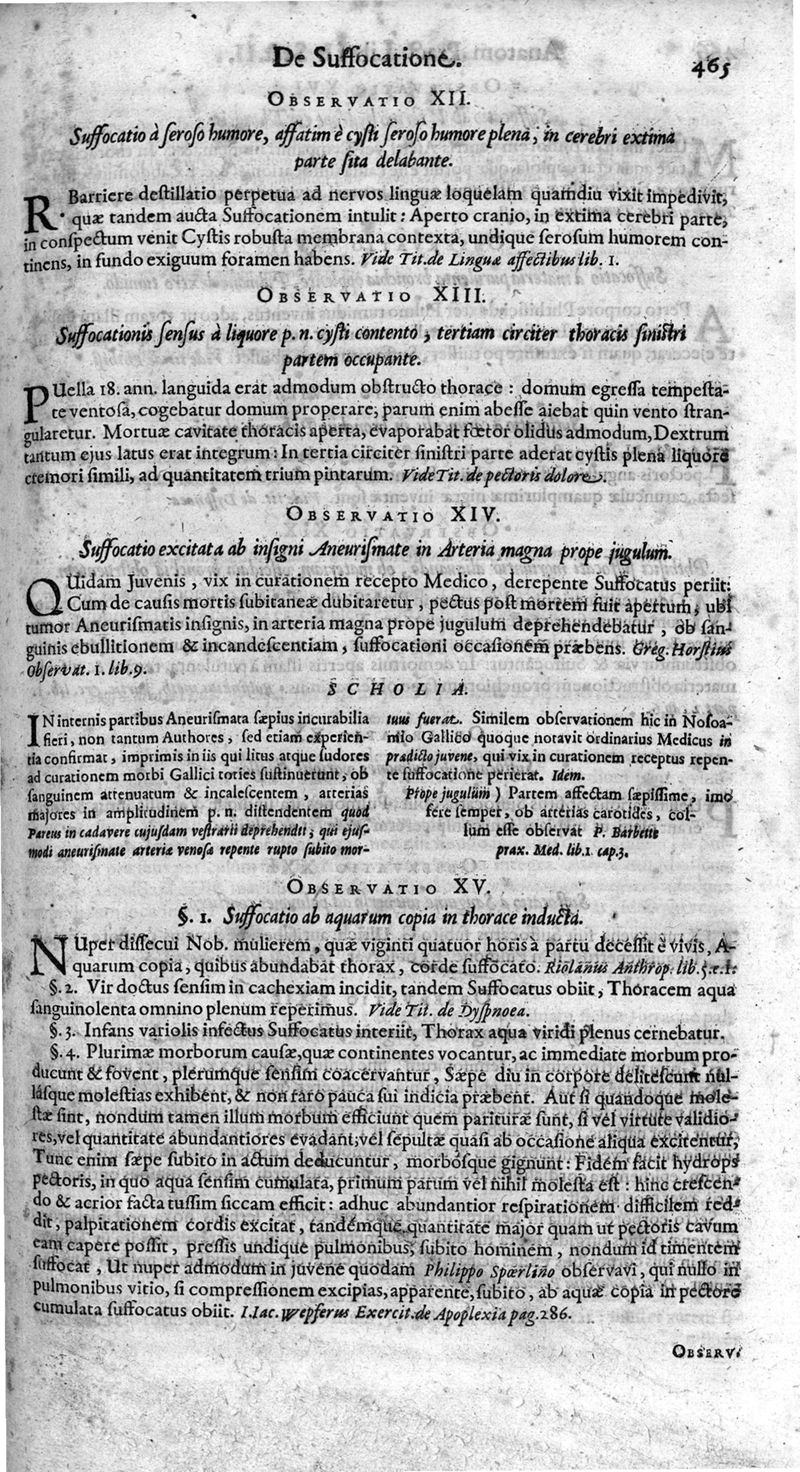 De Suffocatione.
465
OBSERVATIO XII.
Suffocatio à ſeroſo humore, affatim è cyſti ſeroſo humore plena, in cerebri extima
parte ſita delabante.
R. Barriere deſtillatio perpetua ad nervos linguæ loquelam quamdiu vixit impedivit,
quæ tandem aucta Suffocationem intulit: Aperto cranio, in extima cerebri parte,
in conſpectum venit Cyſtis robuſta membrana contexta, undique ſeroſum humorem con-
tinens, in fundo exiguum foramen habens. Vide Tit. de Linguæ affectibus lib. 1.
OBSERVATIO XIII.
Suffocationis ſenſus à liquore p. n. cyſti contento, tertiam circiter thoracis ſiniſtri
partem occupante.
PUella 18. ann. languida erat admodum obſtructo thorace: domum egreſſa tempeſta-
te ventoſa, cogebatur domum properare, parum enim abeſſe aiebat quin vento ſtran-
gularetur. Mortuæ cavitate thoracis aperta, evaporabat fœtor olidus admodum, Dextrum
tantum ejus latus erat integrum: In tertia circiter ſiniſtri parte aderat cyſtis plena liquore
cremori ſimili, ad quantitatem trium pintarum. Vide Tit. de pectoris dolore.
OBSERVATIO XIV.
Suffocatio excitata ab inſigni Aneuriſmate in Arteria magna prope jugulum.
QUidam Juvenis, vix in curationem recepto Medico, derepente Suffocatus periit:
Cum de cauſis mortis ſubitaneæ dubitaretur, pectus poſt mortem fuit apertum, ubi
tumor Aneuriſmatis inſignis, in arteria magna prope jugulum deprehendebatur, ob ſan-
guinis ebullitionem & incandeſcentiam, ſuffocationi occaſionem præbens. Greg. Horſtius
Obſervat. 1. lib. 9.
SCHOLIA.
IN internis partibus Aneuriſmata ſæpius incurabilia
fieri, non tantum Authores, ſed etiam experien-
tia confirmat, imprimis in iis qui litus atque ſudores
ad curationem morbi Gallici toties ſuſtinuerunt, ob
ſanguinem attenuatum & incaleſcentem, arterias
majores in amplitudinem p. n. diſtendentem quod
Pareus in cadavere cujuſdam veſtrarii deprehendit; qui ejuſ-
modi aneuriſmate arteriæ venoſa repente rupto ſubito mor-
tuus fuerat. Similem obſervationem hic in Noſoa-
mio Gallico quoque notavit ordinarius Medicus in
prædicto juvene, qui vix in curationem receptus repen-
te ſuffocatione perierat. Idem.
Prope jugulum) Partem affectam ſæpiſſime, imo
fere ſemper, ob arterias carotides, col-
lum eſſe obſervat P. Barbette
prax. Med. lib. 1. cap. 3.
OBSERVATIO XV.
§. 1. Suffocatio ab aquarum copia in thorace inducta.
NUper diſſecui Nob. mulierem, quæ viginti quatuor horis à partu deceſſit è vivis, A-
quarum copia, quibus abundabat thorax, corde ſuffocato. Riolanus Anthrop. lib. 3. c. 1.
§. 2. Vir doctus ſenſim in cachexiam incidit, tandem Suffocatus obiit, Thoracem aqua
ſanguinolenta omnino plenum reperimus. Vide Tit. de Dyſpnoea.
§. 3. Infans variolis infectus Suffocatus interiit, Thorax aqua viridi plenus cernebatur.
§. 4. Plurimæ morborum cauſæ, quæ continentes vocantur, ac immediate morbum pro-
ducunt & fovent, plerumque ſenſim coacervantur, Sæpe diu in corpore deliteſcunt nul-
lasque moleſtias exhibent, & non raro pauca ſui indicia præbent. Aut ſi quandoque mole-
ſtæ ſint, nondum tamen illum morbum efficiunt quem parituræ ſunt, ſi vel virtute validio-
res, vel quantitate abundantiores evadant; vel ſepultæ quaſi ab occaſione aliqua excitentur,
Tunc enim ſæpe ſubito in actum deducuntur, morbóſque gignunt: Fidem facit hydrops
pectoris, in quo aqua ſenſim cumulata, primum parum vel nihil moleſta eſt: hinc creſcen-
do & acrior facta tuſſim ſiccam efficit: adhuc abundantior reſpirationem difficilem red-
dit, palpitationem cordis excitat, tandémque quantitate major quam ut pectoris cavum
eam capere poſſit, preſſis undique pulmonibus, ſubito hominem, nondum id timentem
ſuffocat, Ut nuper admodum in juvene quodam Philippo Spærlino obſervavi, qui nullo in
pulmonibus vitio, ſi compreſſionem excipias, apparente, ſubito, ab aquæ copia in pectore
cumulata ſuffocatus obiit. I. Iac. Wepferus Exercit. de Apoplexia pag. 286.
OBSERV.